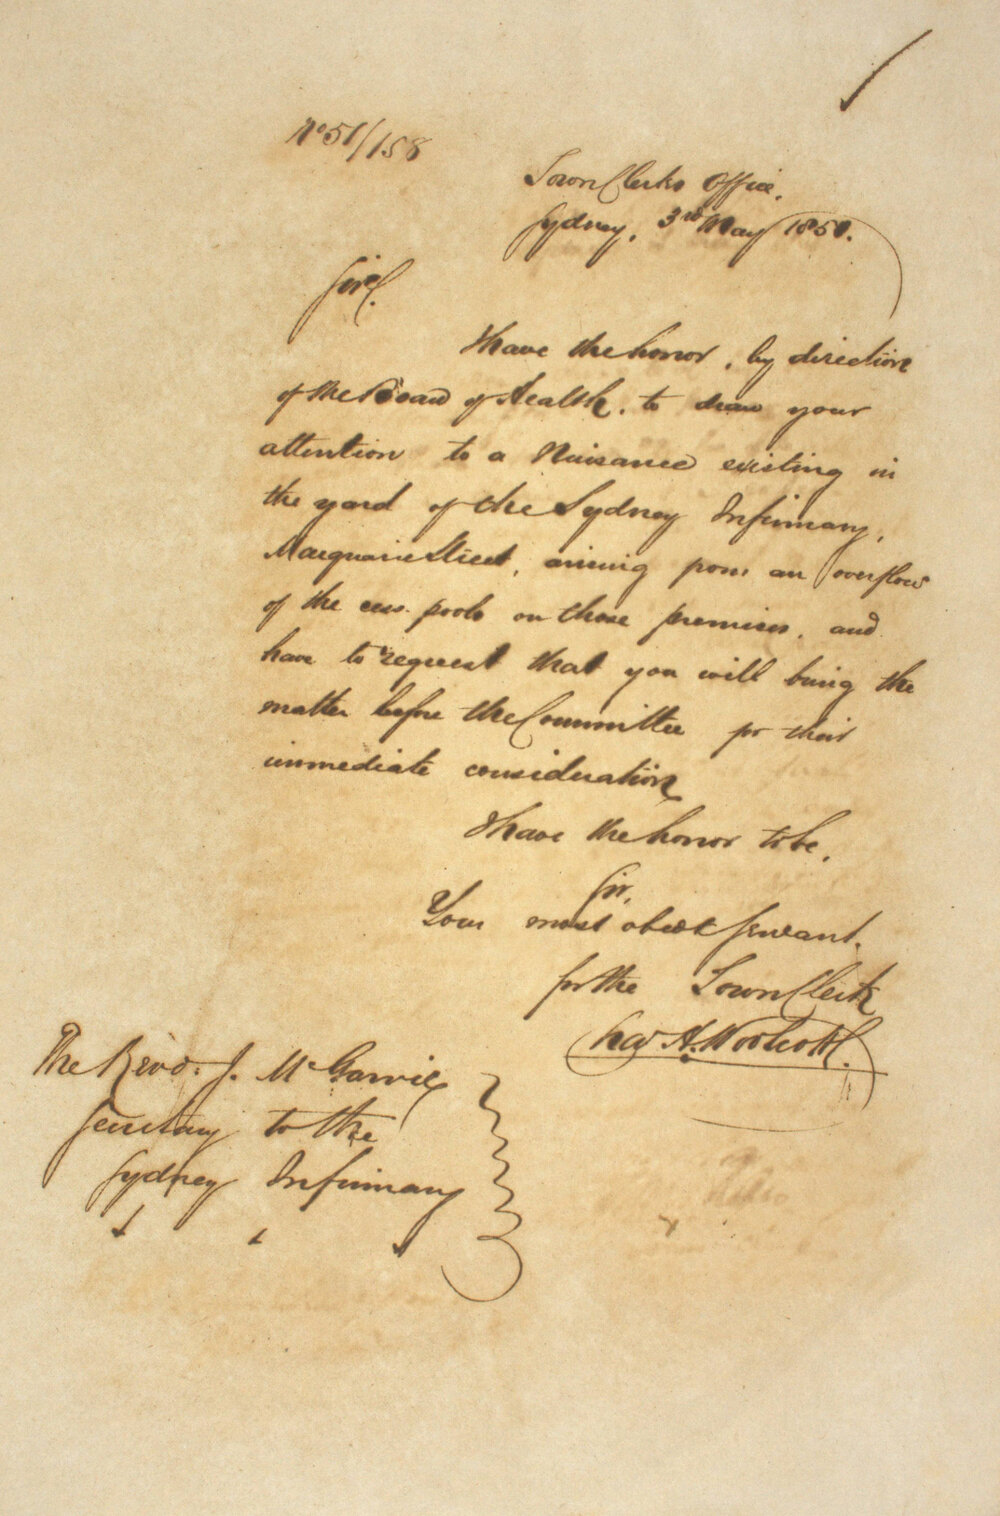 No 51/158
Town Clerks Office,
Sydney, 3rd May 1851.
Sir,
I have the honor, by direction
of the Board of Health, to draw your
attention to a Nuisance existing in
the yard of the Sydney Infirmary,
Macquarie Street, arising from an overflow
of the cess pools on those premises, and
have to request that you will bring the
matter before the Committee for their
immediate consideration
I have the honor to be,
Sir,
Your most obedt servant,
for the Town Clerk
Chas A. Woolcott.
The Revd. J. McGarvie
Secretary to the
Sydney Infirmary